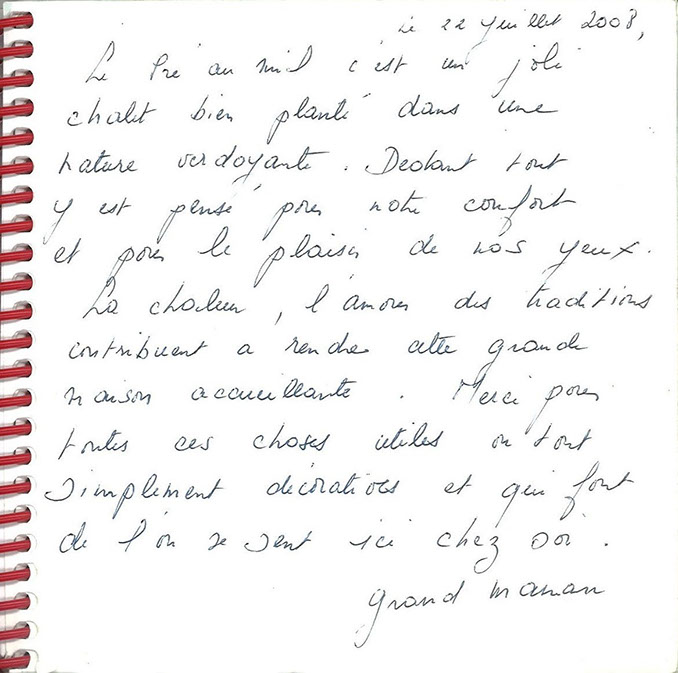 Le 22 Juillet 2008,
Le Pré au Mil c'est un joli
chalet bien planté dans une
nature verdoyante. Dedant tout
y est pensé pour notre confort
et pour le plaisir de nos yeux.
La chaleur, l'amour des traditions
contribuent a rendre cette grande
maison accueillante. Merci pour
toutes ces choses utiles ou tout
simplement décoratives et qui font
de l'on se sent ici chez soi.
Grand maman